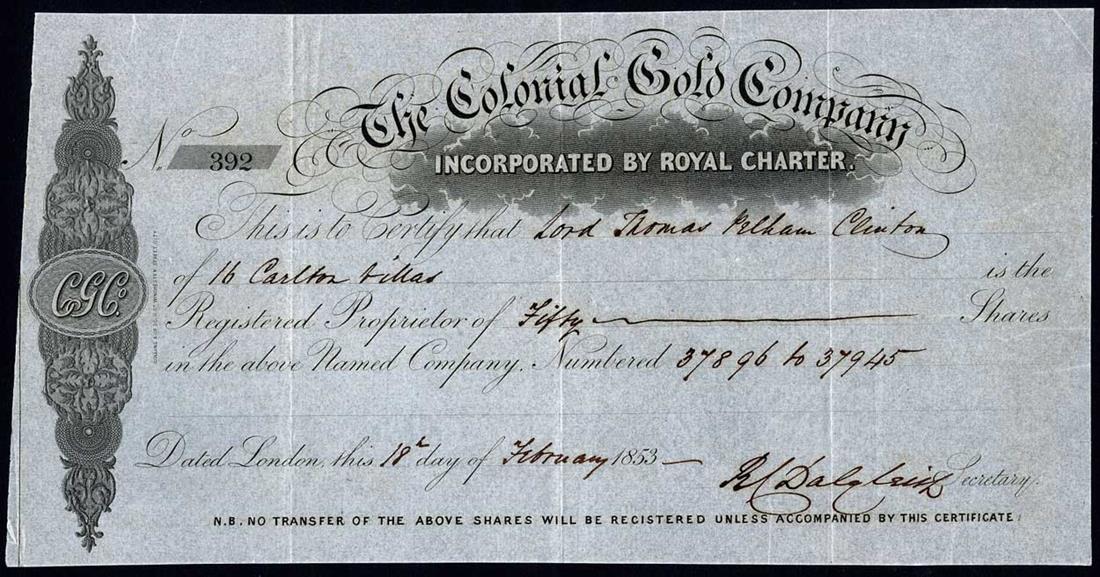 The Colonial Gold Company
INCORPORATED BY ROYAL CHARTER.
No. 392
This is to Certify that Lord Thomas Pelham Clinton
of 16 Carlton Villas is the
Registered Proprietor of Fifty Shares
in the above Named Company, Numbered 37896 to 37945
Dated London, this 18th day of February 1853
Dalgleish Secretary.
N.B. NO TRANSFER OF THE ABOVE SHARES WILL BE REGISTERED UNLESS ACCOMPANIED BY THIS CERTIFICATE.
CGCo.